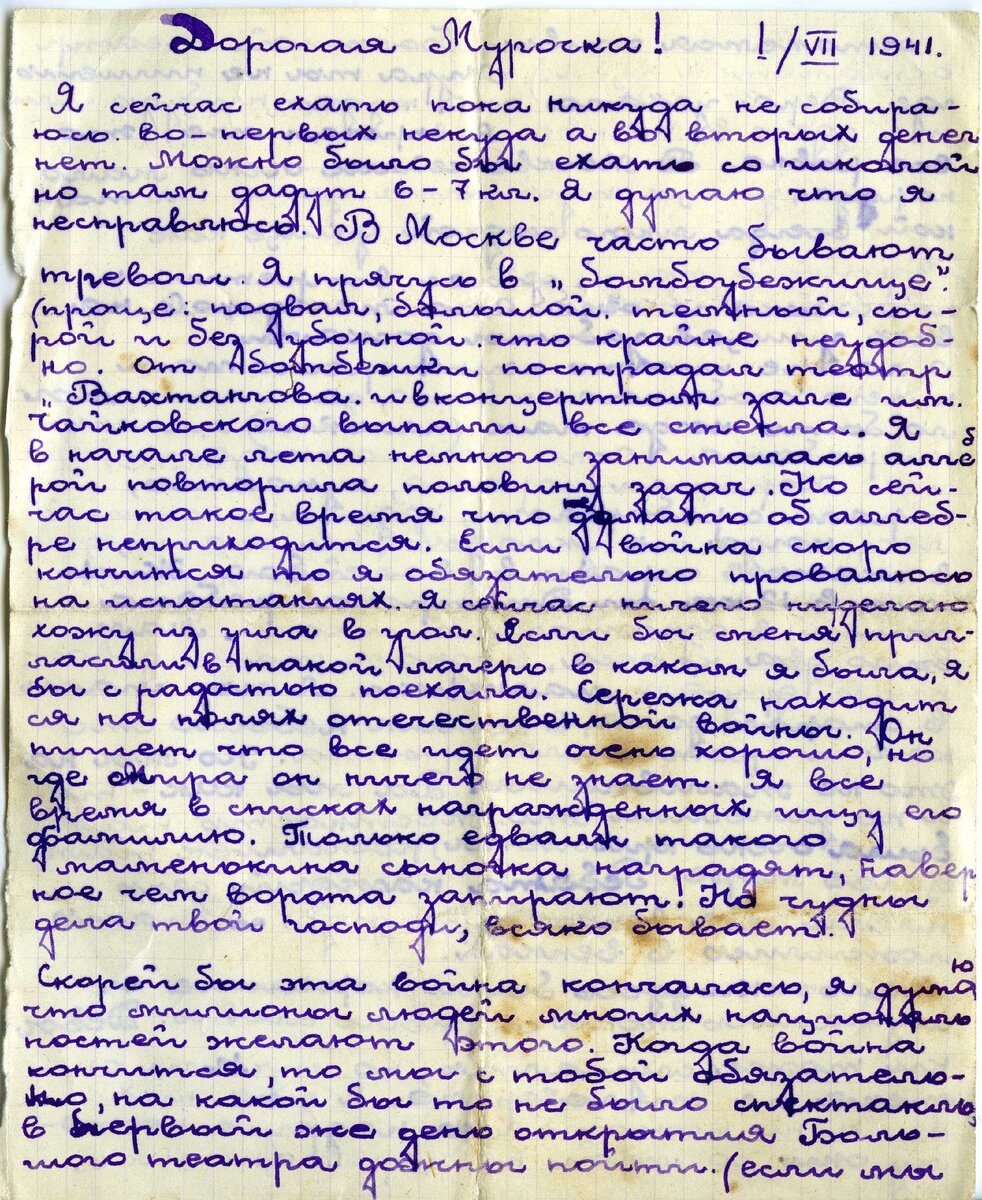 Дорогая Мурочка! I/VII 1941.
Я сейчас ехать пока никуда не собира-
юсь. во-первых некуда а во вторых денег
нет. Можно было бы ехать со школой
но там дадут 6-7 кл. Я думаю что я
несправлюсь. В Москве часто бывают
тревоги. Я прячусь в „бомбоубежище".
(проще: подвал, большой. темный, сы-
рой и без уборной. что крайне неудоб-
но. От бомбежки пострадал театр
„Вахтангова. и в концертном зале им.
Чайковского выпали все стекла. Я
в начале лета немного занималась алгеб
рой повторила половину задач. Но сей-
час такое время что думать об алгеб-
ре неприходится. Если война скоро
кончится то я обязательно провалюсь
на испытаниях. Я сейчас ничего ниделаю
хожу из угла в угол. Если бы меня приг-
ласили в такой лагерь в каком я была, я
бы с радостью поехала. Сережа находит
ся на полях отечественной войны. Он
пишет что все идет очень хорошо, но
где Мира он ничего не знает. Я все
время в списках награжденных ищу его
фамилию. Только едвали такого
маменькина сыночка наградят, навер
ное чем ворота запирают! Но чудны
дела твои господи, всяко бывает!
Скорей бы эта война кончалась, я думаю
что милионы людей многих националь
ностей желают этого. Когда война
кончится, то мы с тобой обязатель-
но, на какой бы то не было спектакль,
в первый же день открытия Боль-
шого театра должны пойти. (если мы